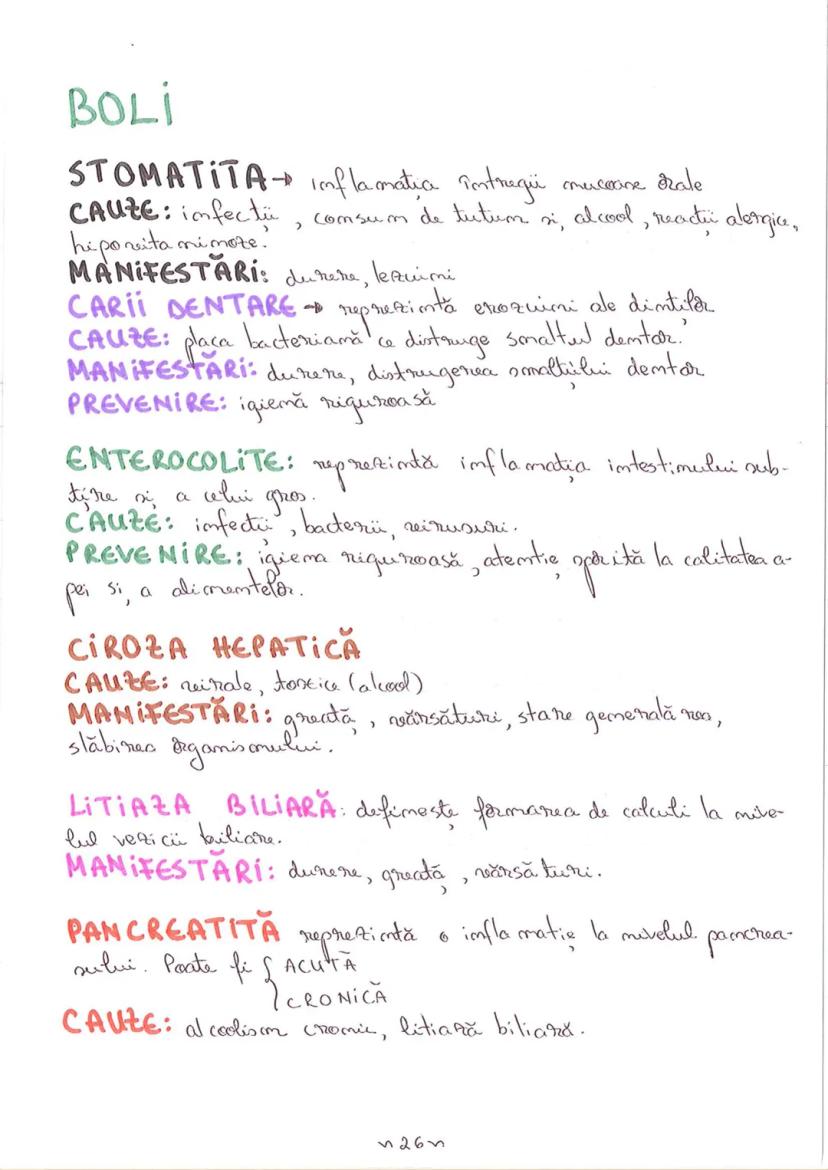 BOLI
STOMATITA → inflamația întregii mucoase orale
CAUZE: infecții, consum de tutun și alcool, reacții alergice,
hipovitaminoze.
MANIFESTĂRI: durere, leziuni
CARII DENTARE → reprezintă eroziuni ale dinților
CAUZE: placa bacteriană ce distruge smalțul dentar.
MANIFESTĂRI: durere, distrugerea smalțului dentar
PREVENIRE: igienă riguroasă
ENTEROCOLITE: reprezintă inflamația intestinului sub-
țire și a celui gros.
CAUZE: infecții, bacterii, virusuri.
PREVENIRE: igiena riguroasă, atenție sporită la calitatea a-
pei și a alimentelor.
CIROZA HEPATICĂ
CAUZE: virale, toxice (alcool)
MANIFESTĂRI: greață, vărsături, stare generală rea,
slăbirea organismului.
LITIAZA BILIARĂ: definește formarea de calculi la nive-
lul vezicii biliare.
MANIFESTĂRI: durere, greață, vărsături.
PANCREATITĂ reprezintă o inflamație la nivelul pancrea-
sului. Poate fi { ACUTĂ
CRONICĂ
CAUZE: alcoolism cronic, litiază biliară.
~26~